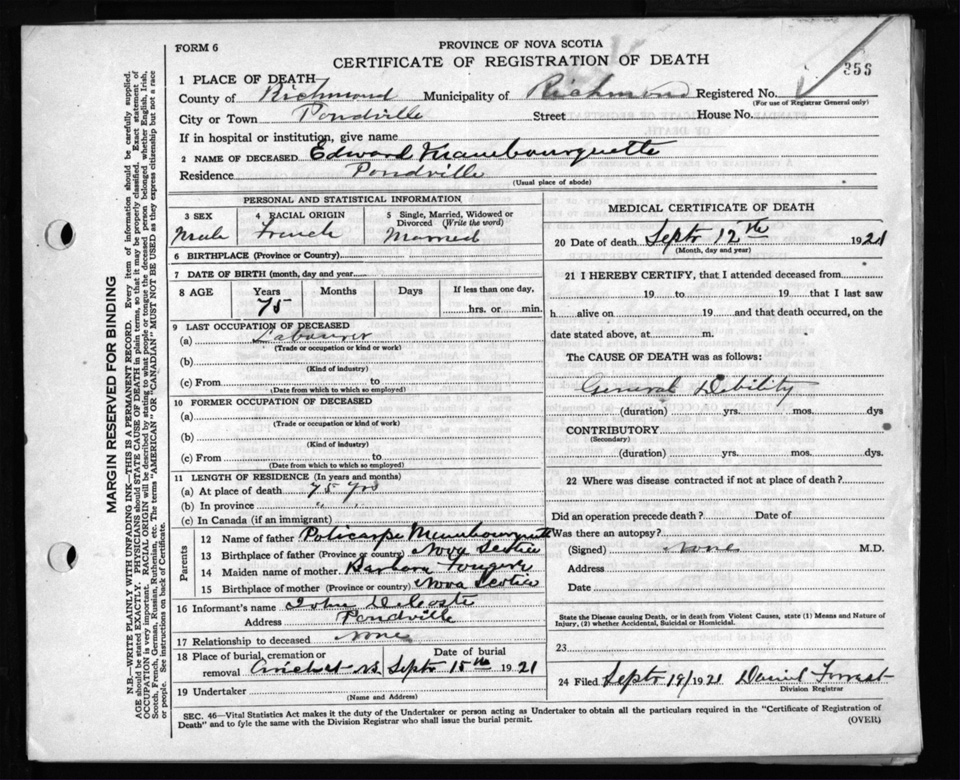 FORM 6
PROVINCE OF NOVA SCOTIA
CERTIFICATE OF REGISTRATION OF DEATH
356
1 PLACE OF DEATH
County of Richmond Municipality of Richmond Registered No.
(For use of Registrar General only)
City or Town Pondville Street House No.
If in hospital or institution, give name
2 NAME OF DECEASED Edward
Residence Pondville
(Usual place of abode)
PERSONAL AND STATISTICAL INFORMATION
3 SEX 4 RACIAL ORIGIN 5 Single, Married, Widowed or Divorced (Write the word)
Male French Married
6 BIRTHPLACE (Province or Country)
7 DATE OF BIRTH (month, day and year
8 AGE Years Months Days If less than one day,
75 hrs. or min.
9 LAST OCCUPATION OF DECEASED
(a) Labourer
(Trade or occupation or kind or work)
(b)
(Kind of industry)
(c) From to
(Date from which to which so employed)
10 FORMER OCCUPATION OF DECEASED
(a)
(Trade or occupation or kind of work)
(b)
(Kind of industry)
(c) From to
(Date from which to which so employed)
11 LENGTH OF RESIDENCE (In years and months)
(a) At place of death 75 yrs
(b) In province " "
(c) In Canada (if an immigrant)
Parents
12 Name of father Policarpe
13 Birthplace of father (Province or country) Nova Scotia
14 Maiden name of mother Barbara
15 Birthplace of mother (Province or country) Nova Scotia
16 Informant's name John DeCoste
Address Pondville
17 Relationship to deceased none
18 Place of burial, cremation or removal Date of burial
Arichat N.S. Septr 15th 1921
19 Undertaker
(Name and Address)
MEDICAL CERTIFICATE OF DEATH
20 Date of death Septr 12th 1921
(Month, day and year)
21 I HEREBY CERTIFY, that I attended deceased from
19 to 19 that I last saw
h alive on 19 and that death occurred, on the
date stated above, at m.
The CAUSE OF DEATH was as follows:
General Debility
(duration) yrs. mos. dys
CONTRIBUTORY
(Secondary)
(duration) yrs. mos. dys.
22 Where was disease contracted if not at place of death?
Did an operation precede death? Date of
Was there an autopsy?
(Signed) none M.D.
Address
Date
State the Disease causing Death, or in death from Violent Causes, state (1) Means and Nature of
Injury, (2) whether Accidental, Suicidal or Homicidal.
23
24 Filed Septr 19/1921 Daniel
Division Registrar
SEC. 46—Vital Statistics Act makes it the duty of the Undertaker or person acting as Undertaker to obtain all the particulars required in the "Certificate of Registration of
Death" and to fyle the same with the Division Registrar who shall issue the burial permit.
(OVER)
MARGIN RESERVED FOR BINDING
N.B.—WRITE PLAINLY WITH UNFADING INK—THIS IS A PERMANENT RECORD. Every item of information should be carefully supplied.
AGE should be stated EXACTLY. PHYSICIANS should STATE CAUSE OF DEATH in plain terms, so that it may be properly classified. Exact statement of
OCCUPATION is very important. RACIAL ORIGIN will be described by stating to what people or tongue the deceased person belonged whether English, Irish,
Scotch, French, German, Russian, Ruthenian, etc. The terms "AMERICAN" or "CANADIAN" MUST NOT BE USED as they express citizenship but not a race
or people. See instructions on back of Certificate.